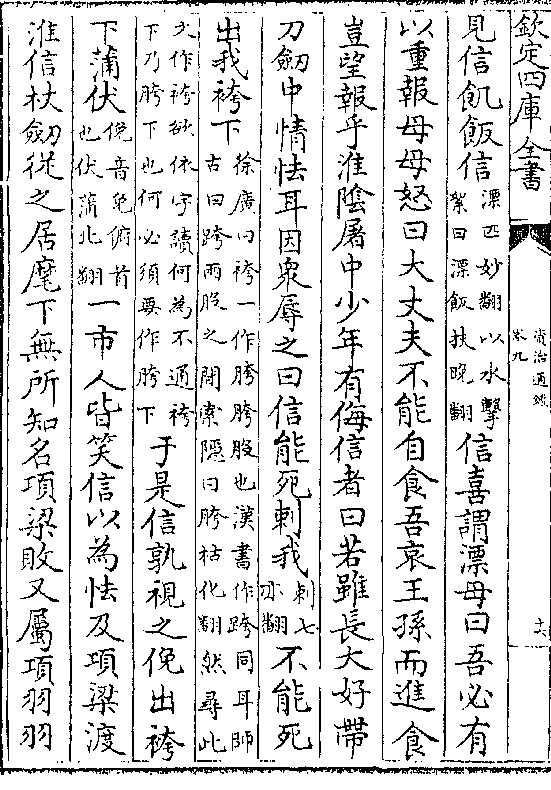 欽定四庫全書
資治通鑑
卷九
十六
見信飢飯信漂匹妙翻以水擊絮曰漂飯扶晚翻信喜謂漂母曰吾必有
以重報母母怒曰大丈夫不能自食吾哀王孫而進食
豈望報乎淮陰屠中少年有侮信者曰若雖長大好帶
刀劒中情怯耳因衆辱之曰信能死刺我刺七亦翻不能死
出我袴下徐廣曰袴一作胯胯股也漢書作跨同耳師古曰跨兩股之間索隱曰胯枯化翻然尋此
文作袴欲依字讀何為不通袴下乃胯下也何必須要作胯下于是信孰視之俛出袴
下蒲伏俛音免俯首也伏蒲北翻一市人皆笑信以為怯及項梁渡
淮信杖劒從之居麾下無所知名項梁敗又屬項羽羽